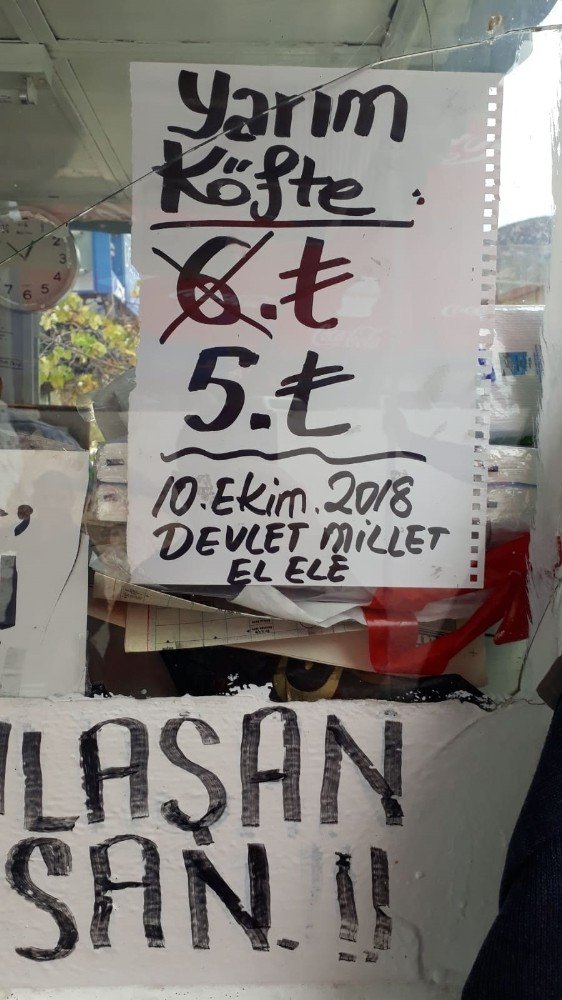 Yarım
Köfte :
6.₺
5.₺
10.Ekim.2018
DEVLET MİLLET
EL ELE
LAŞAN
SAN.!!